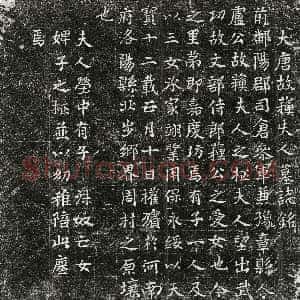 大唐故蘇夫人墓誌銘
前鄱陽郡司倉參軍專豫章縣令
盧公故蘇夫人之柩夫人望出武
功故文部侍郎蘇公之愛女也
之里第即嘉慶坊焉有子一人及
以三女永家嗣業用保永綏以天
寶十二載正月十日權殯於河南
府洛陽縣北步鄉界周村之原壤
也
夫人塋中有子母奴亡女
婢子之極並以幼稚陪此塵
焉